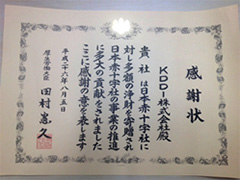 感謝状
KDDI株式会社殿
貴社は日本赤十字社に
対し多額の浄財を寄贈され
日本赤十字社の事業の推進
に多大の貢献をされました
ここに感謝の意を表します
平成二十六年八月五日
厚生労働大臣 田村憲久